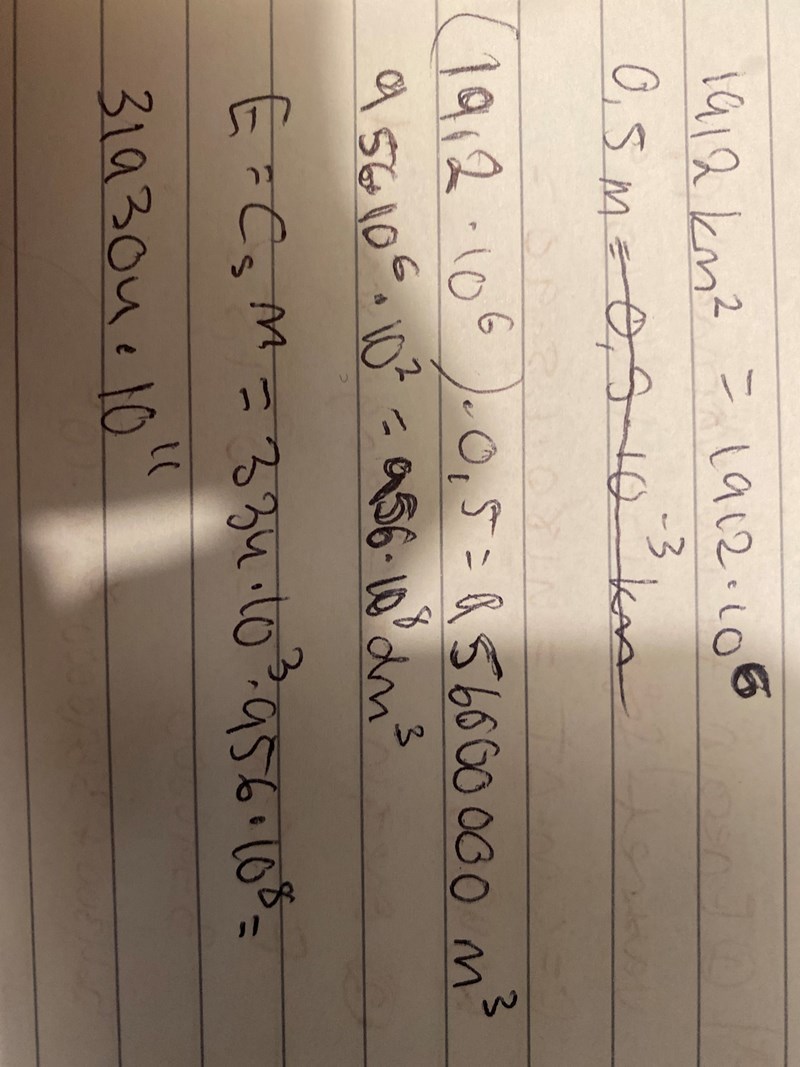 1912 km² = 1912 · 10⁶
0,5 m = 0,5 · 10⁻³ km
(1912 · 10⁶) · 0,5 = 956000000 m³
956 · 10⁶ · 10² = 956 · 10⁸ dm³
E = Cs m = 334 · 10³ · 956 · 10⁸ =
319304 · 10¹¹